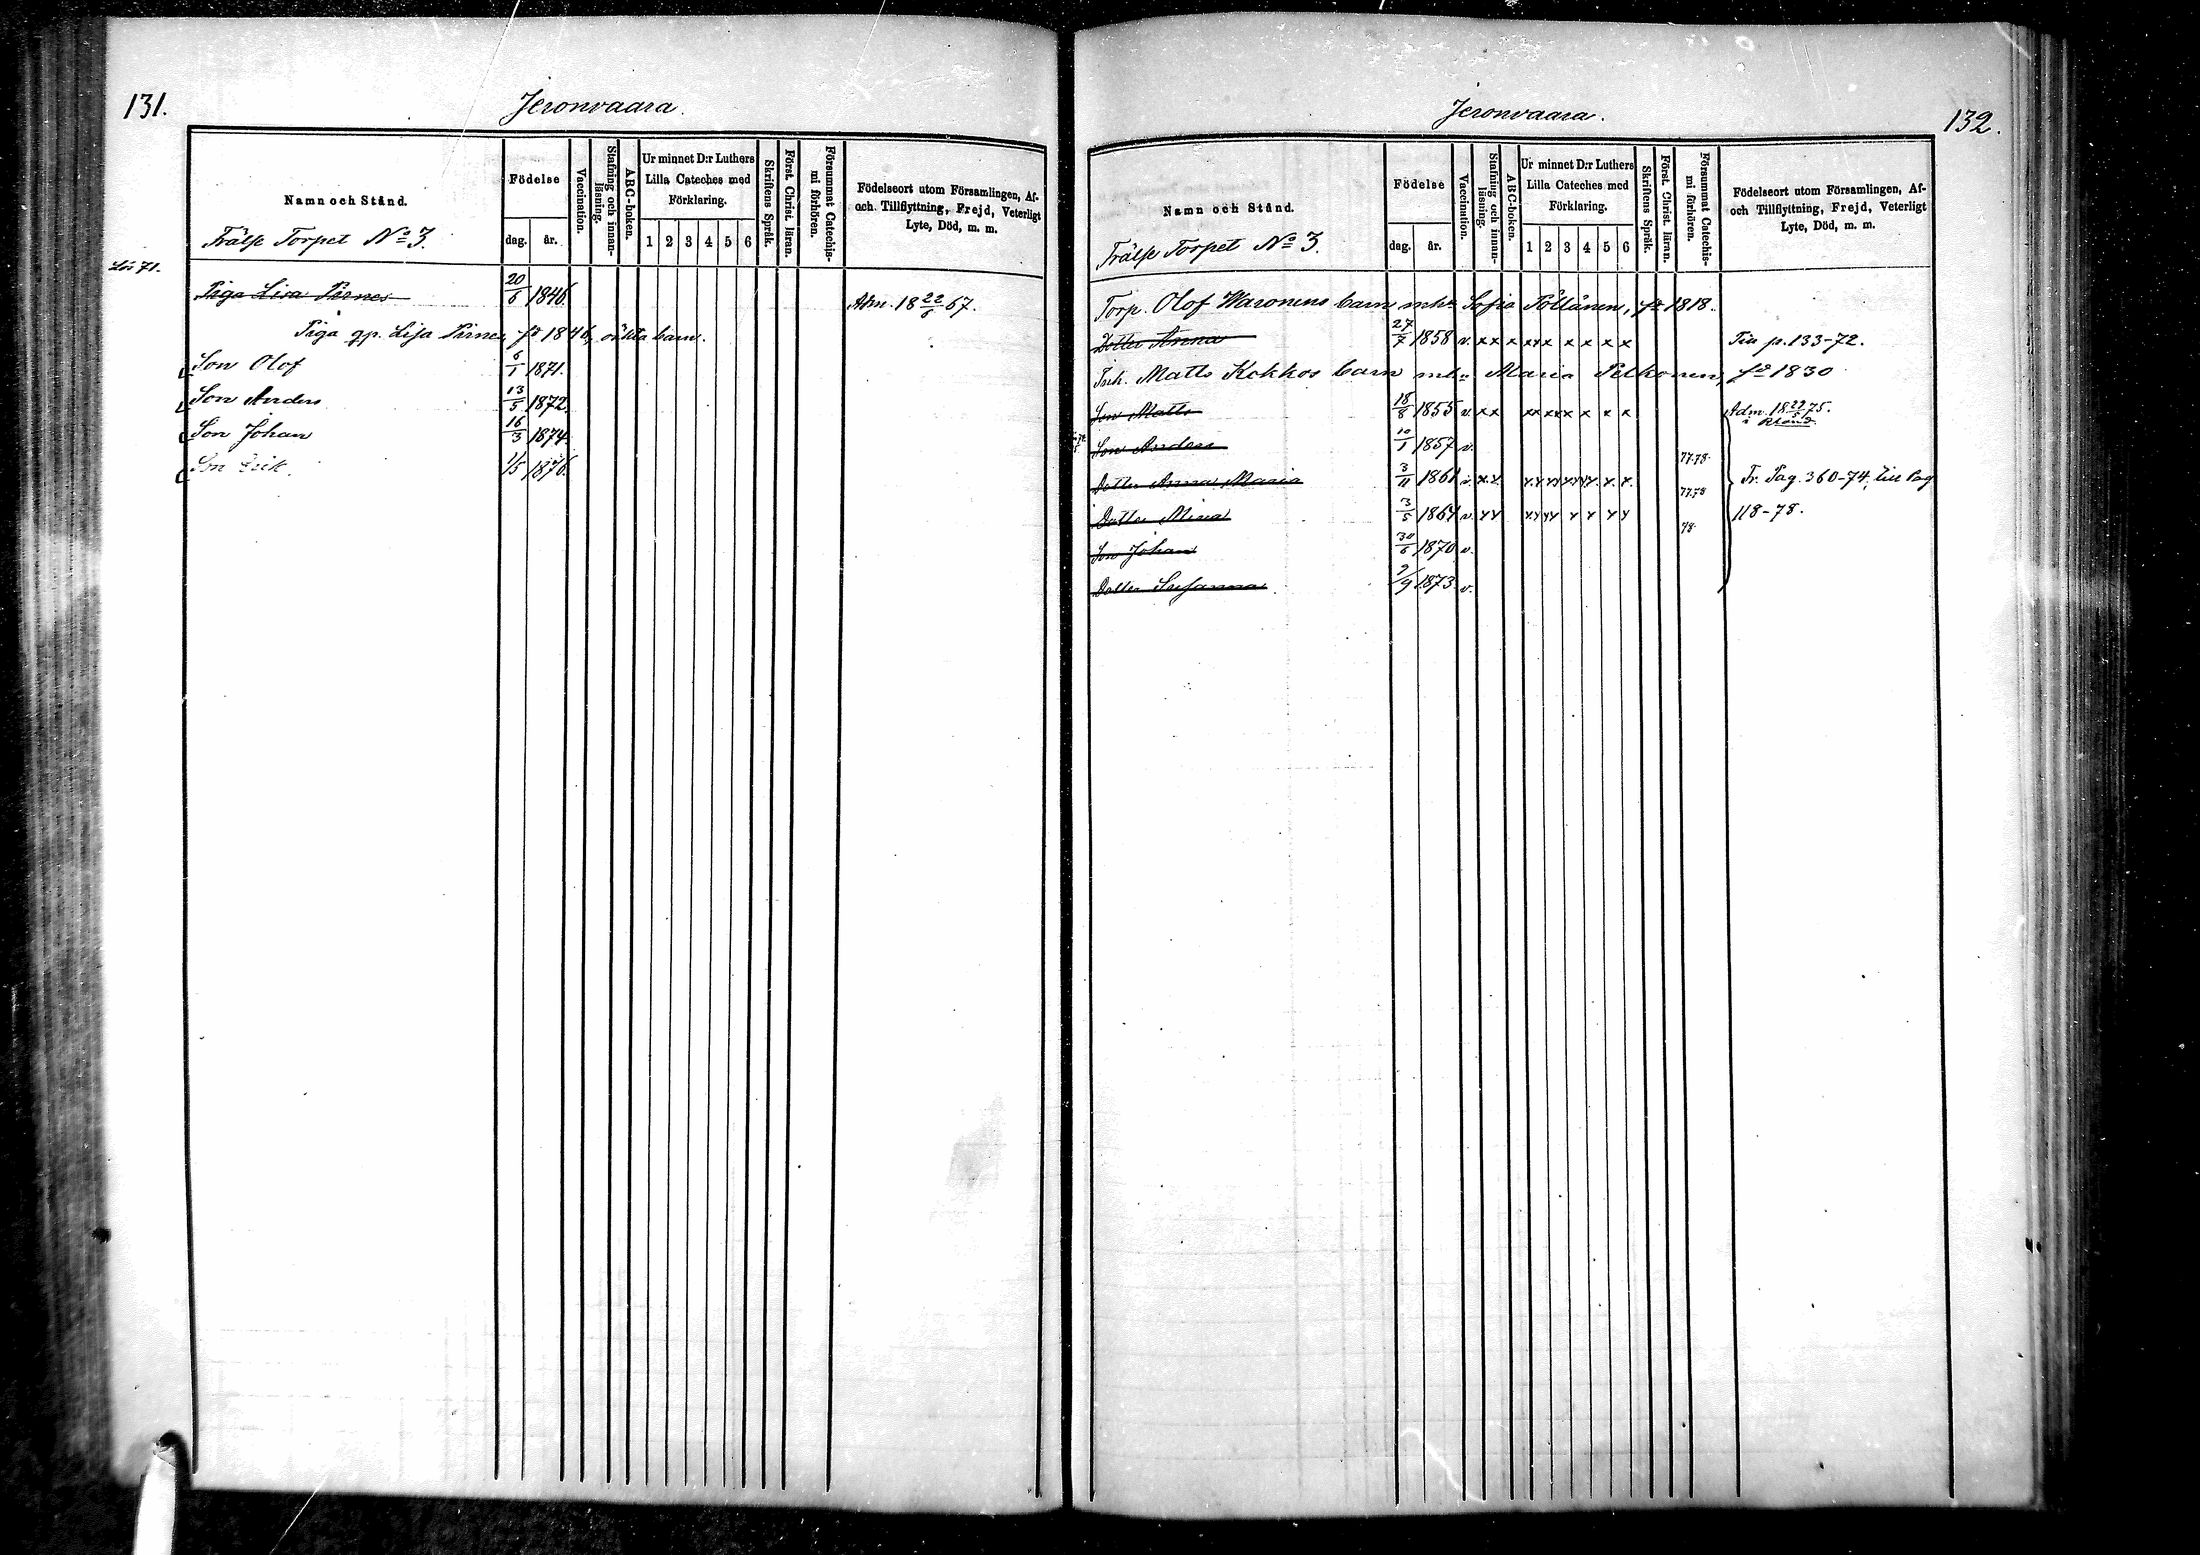 131.
Jeronvaara.
Namn och Stånd.
Födelse
dag.
år.
Vaccination.
Stafning och innanläsning.
ABC-boken.
Ur minnet D:r Luthers Lilla Cateches med Förklaring.
1 2 3 4 5 6
Skriftens Språk.
Först. Christ. läran.
Försummat Catechismi förhören.
Födelseort utom Församlingen, Af-
och Tillflyttning, Frejd, Veterligt
Lyte, Död, m. m.
Frälse Torpet No 3.
Lös 71.
Piga Lisa Pirnes 20/6 1846. Adm. 18 22/6 67.
Piga qp. Lisa Pirnes, fd 1846, oäkta barn.
Son Olof 6/1 1871.
Son Anders 13/5 1872.
Son Johan 16/3 1874.
Son Erik. 1/5 1876.
Jeronvaara.
132.
Namn och Stånd.
Födelse
dag.
år.
Vaccination.
Stafning och innanläsning.
ABC-boken.
Ur minnet D:r Luthers Lilla Cateches med Förklaring.
1 2 3 4 5 6
Skriftens Språk.
Först. Christ. läran.
Försummat Catechismi förhören.
Födelseort utom Församlingen, Af-
och Tillflyttning, Frejd, Veterligt
Lyte, Död, m. m.
Frälse Torpet No 3.
Torp. Olof Waronens barn mhu Sofia Pöllänen, fd 1818.
Dotter Anna 27/7 1858 v. x x x x x x x x x x Till p. 133-72.
Inh. Matts Kokkos barn mhu Maria Pelkonen, fd 1830
Son Matts 18/8 1855 v x x x x x x x x x x Adm. 18 22/5 75.
Son Anders 10/1 1857 v.
77.78.
Dotter Anna Maria 3/11 1861 v. x x x x x x x x x x x x Fr. Pag. 360-74, till Pag
77.78
Dotter Mina 3/5 1864 v. x x x x x x x x x x 118-78.
78.
Son Johan 30/6 1870 v.
Dotter Susanna 9/9 1873 v.